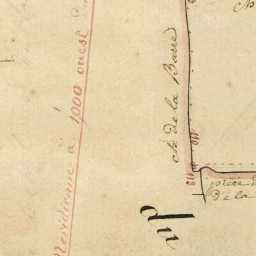 Méridienne à 1000 ouest
ch de la Barre
ch
du
de la